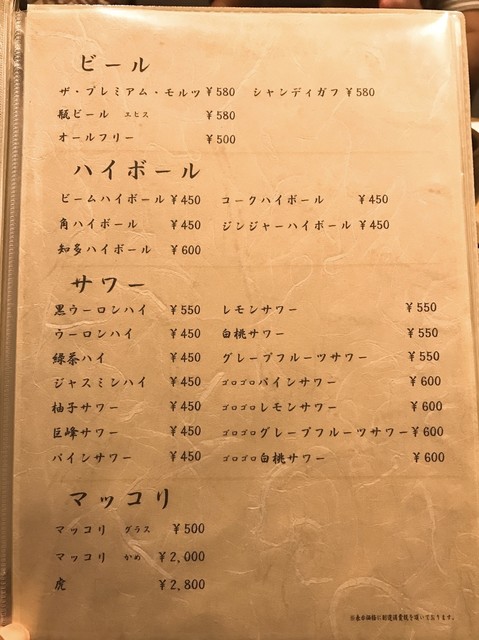 ビール
ザ・プレミアム・モルツ ¥580 シャンディガフ ¥580
瓶ビール エビス ¥580
オールフリー ¥500
ハイボール
ビームハイボール ¥450 コークハイボール ¥450
角ハイボール ¥450 ジンジャーハイボール ¥450
知多ハイボール ¥600
サワー
黒ウーロンハイ ¥550 レモンサワー ¥550
ウーロンハイ ¥450 白桃サワー ¥550
緑茶ハイ ¥450 グレープフルーツサワー ¥550
ジャスミンハイ ¥450 ゴロゴロパインサワー ¥600
柚子サワー ¥450 ゴロゴロレモンサワー ¥600
巨峰サワー ¥450 ゴロゴログレープフルーツサワー ¥600
パインサワー ¥450 ゴロゴロ白桃サワー ¥600
マッコリ
マッコリ グラス ¥500
マッコリ かめ ¥2,000
虎 ¥2,800
※表示価格に別途消費税を頂いております。